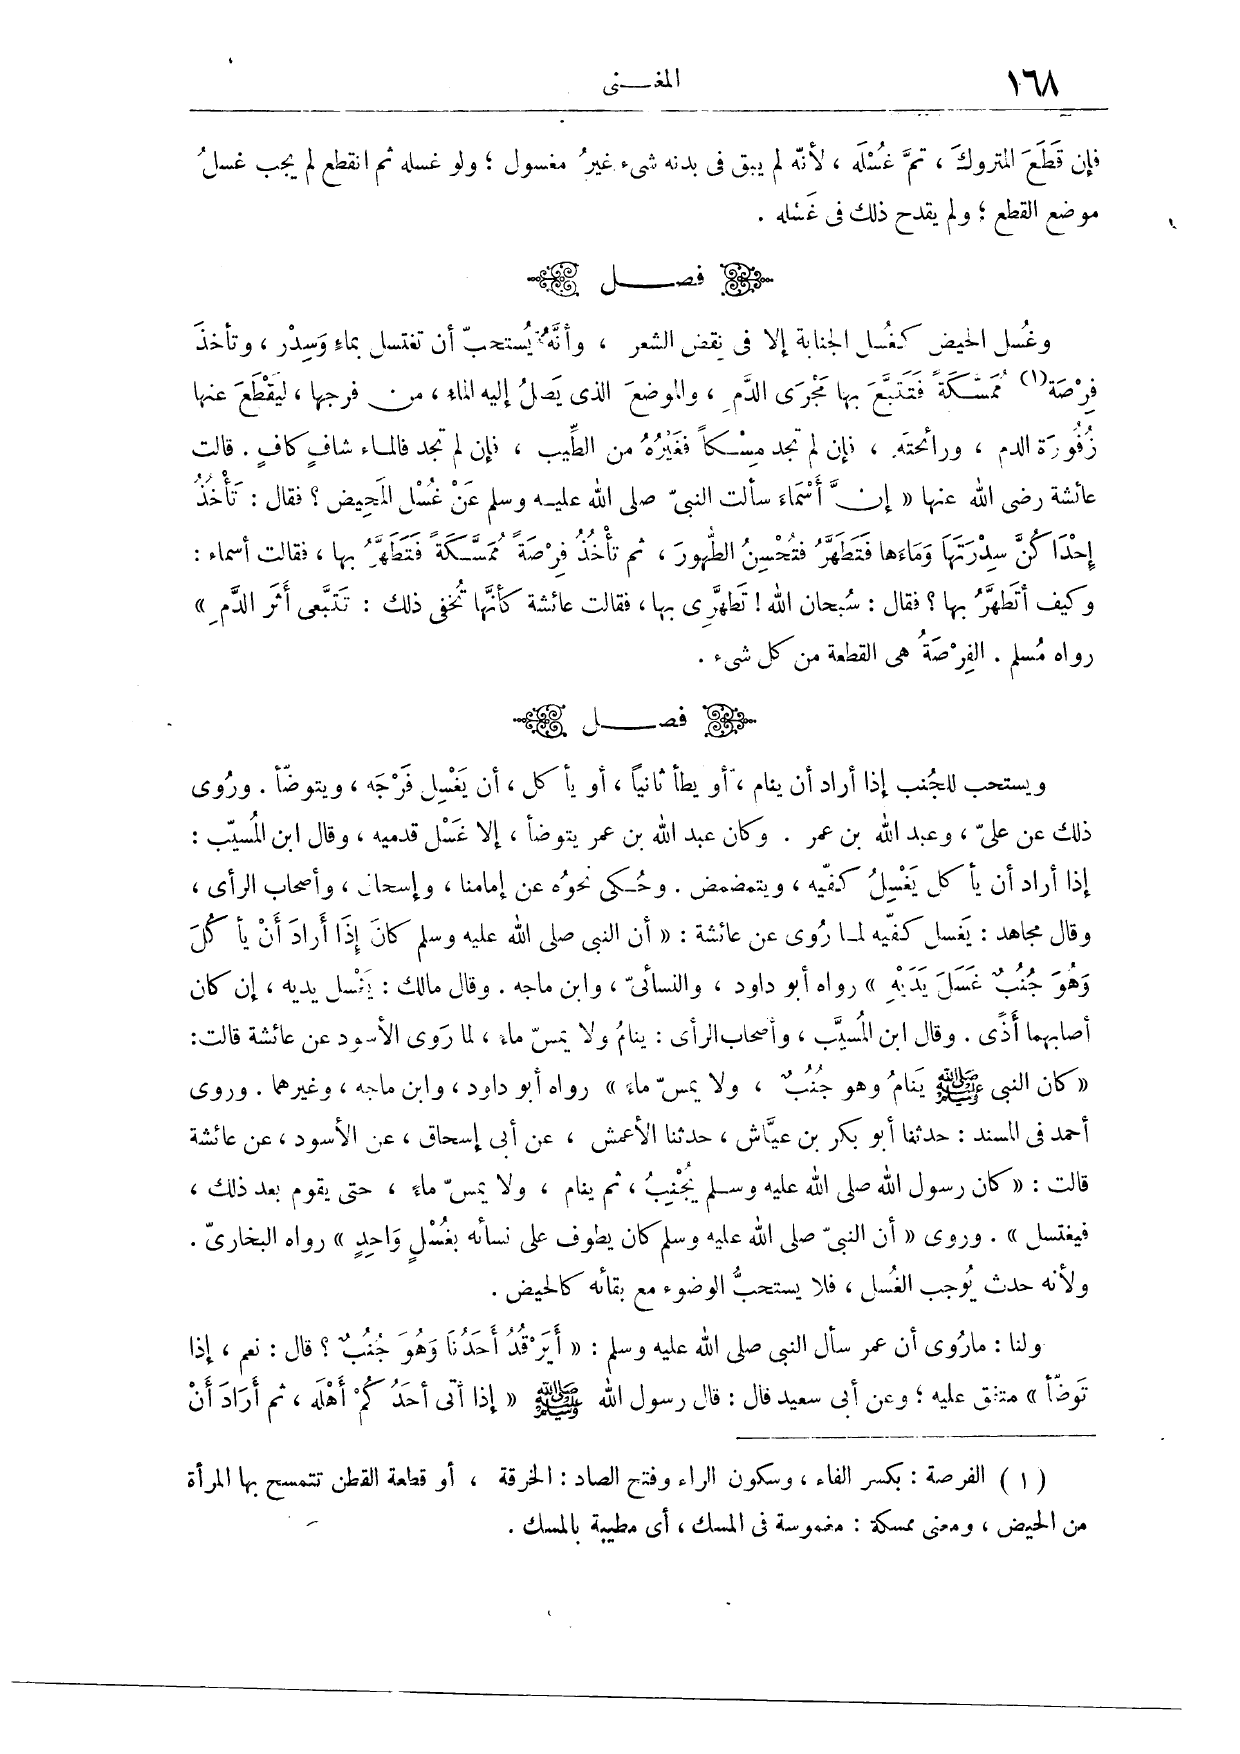 ١٦٨
المغنى
فإن قَطَعَ المتروكَ ، تمَّ غُسْلَه ، لأنّه لم يبق فى بدنه شىء غيرُ مغسول ؛ ولو غسله ثم انقطع لم يجب غسلُ
موضع القطع ؛ ولم يقدح ذلك فى غَسْله .
فصل
وغُسل الحيض كغُسل الجنابة إلا فى نقض الشعر ، وأنَّهُ يُستحبّ أن تغتسل بماء وَسِدْر ، وتأخذَ
فِرْصَة (١) مُمَسَّكَةً فَتَتَبَّعَ بها مَجْرَى الدَّم ، والموضعَ الذى يَصلُ إليه الماء ، من فرجها ، ليَقْطَعَ عنها
زُفُورَة الدم ، ورائحته ، فإن لم تجد مِسْكاً فغَيْرُهُ من الطِّيب ، فإن لم تجد فالماء شافٍ كافٍ . قالت
عائشة رضى الله عنها « إنَّ أَسْمَاءَ سألت النبىّ صلى الله عليه وسلم عَنْ غُسْل المَحِيض ؟ فقال : تَأْخُذُ
إحْدَاكُنَّ سِدْرَتَهَا وَمَاءَها فَتَطَهَّرُ فتُحْسِنُ الطُّهورَ ، ثم تأْخُذُ فِرْصَةً مُمَسَّكَةً فَتَطَهَّرُ بها ، فقالت أسماء :
وكيف أتَطهَّرُ بها ؟ فقال : سُبحان الله ! تَطهَّرِى بها ، فقالت عائشة كأنَّها تُخفى ذلك : تَتَبَّعى أَثَر الدَّمِ »
رواه مُسلم . الفِرْصَةُ هى القطعة من كل شىء .
فصل
ويستحب للجُنب إذا أراد أن ينام ، أو يطأ ثانياً ، أو يأكل ، أن يَغْسِل فَرْجَه ، ويتوضّأ . ورُوى
ذلك عن علىّ ، وعبد الله بن عمر . وكان عبد الله بن عمر يتوضأ ، إلا غَسْل قدميه ، وقال ابن المُسيّب :
إذا أراد أن يأكل يَغْسِلُ كفّيه ، ويتمضمض . وحُكى نحوُه عن إمامنا ، وإسحاق ، وأصحاب الرأى ،
وقال مجاهد : يَغسل كفّيه لما رُوى عن عائشة : « أن النبى صلى الله عليه وسلم كانَ إذَا أَرادَ أَنْ يأكُلَ
وَهُوَ جُنُبٌ غَسَلَ يَدَيْهِ » رواه أبو داود ، والنسائىّ ، وابن ماجه . وقال مالك : يَغْسل يديه ، إن كان
أصابهما أَذًى . وقال ابن المُسيَّب ، وأصحاب الرأى : ينامُ ولا يمسّ ماء ، لما رَوى الأسود عن عائشة قالت :
« كان النبى ﷺ يَنامُ وهو جُنُبٌ ، ولا يمسّ ماءً » رواه أبو داود ، وابن ماجه ، وغيرهما . وروى
أحمد فى المسند : حدثنا أبو بكر بن عيَّاش ، حدثنا الأعمش ، عن أبى إسحاق ، عن الأسود ، عن عائشة
قالت : « كان رسول الله صلى الله عليه وسلم يُجْنِبُ ، ثم ينام ، ولا يمسّ ماءً ، حتى يقوم بعد ذلك ،
فيغتسل » . وروى « أن النبىّ صلى الله عليه وسلم كان يطوف على نسائه بغُسْلٍ وَاحِدٍ » رواه البخارىّ .
ولأنه حدث يُوجب الغُسل ، فلا يستحبُّ الوضوء مع بقائه كالحيض .
ولنا : مارُوى أن عمر سأل النبى صلى الله عليه وسلم : « أَيَرْقُدُ أَحَدُنَا وَهُوَ جُنُبٌ ؟ قال : نعم ، إذا
تَوضّأ » متفق عليه ؛ وعن أبى سعيد قال : قال رسول الله ﷺ « إذا أتى أحَدُكُمْ أَهْلَه ، ثم أَرَادَ أَنْ
(١) الفرصة : بكسر الفاء ، وسكون الراء وفتح الصاد : الخرقة ، أو قطعة القطن تتمسح بها المرأة
من الحيض ، ومعنى ممسكة : مغموسة فى المسك ، أى مطيبة بالمسك .